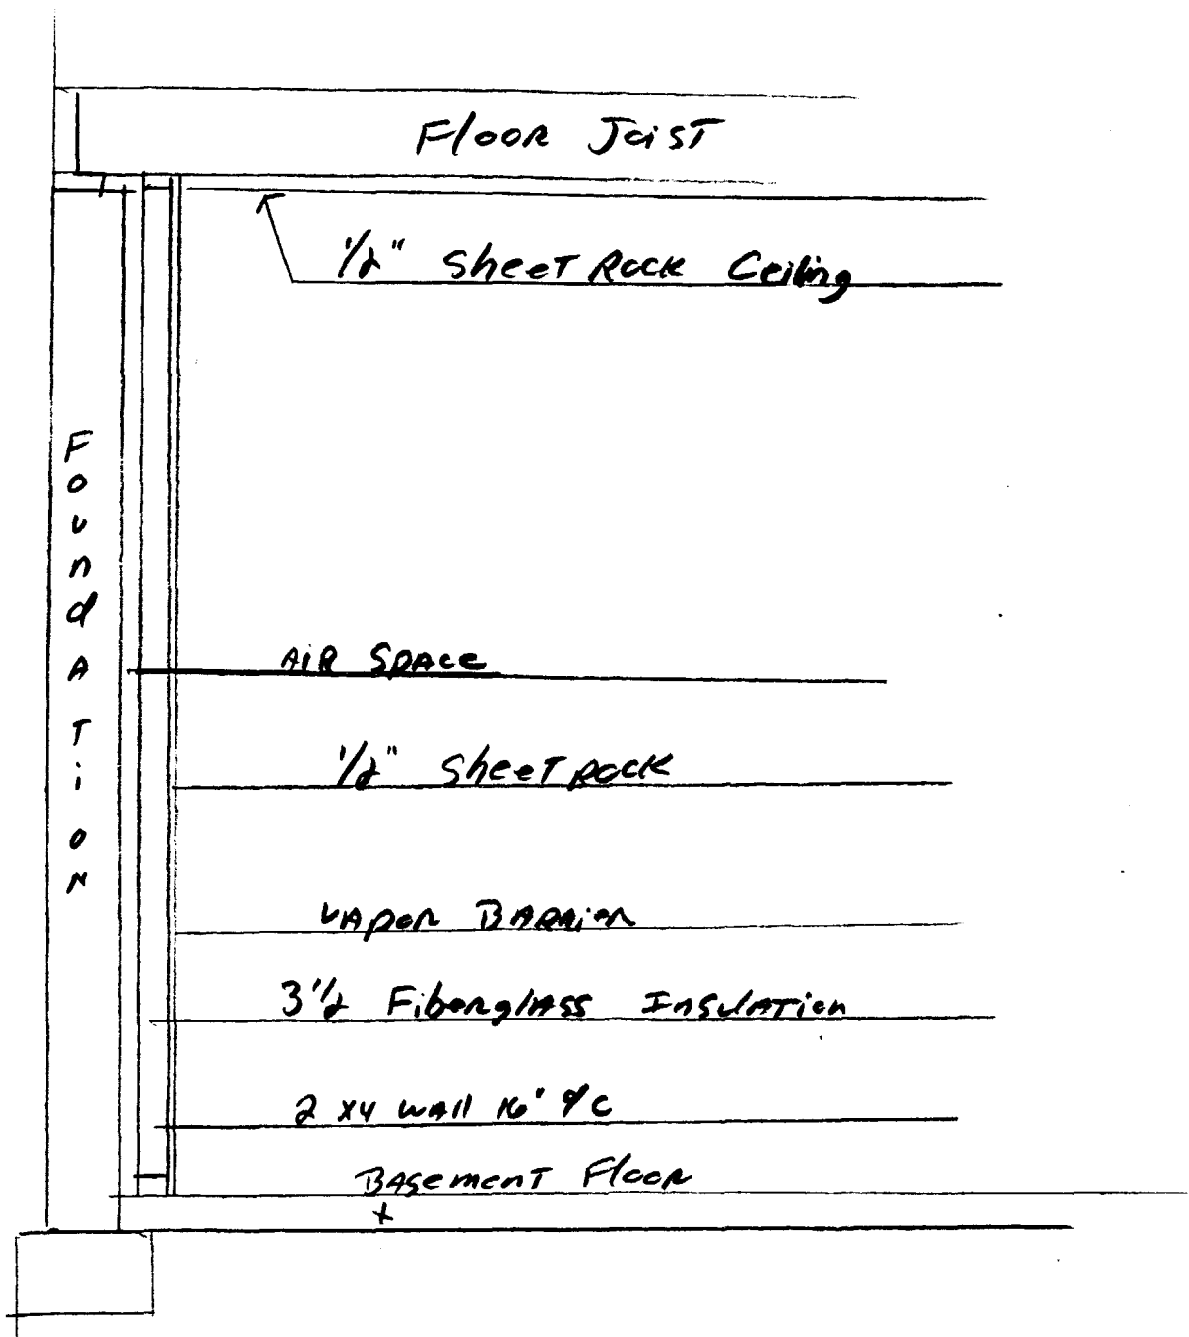 Floor Joist
1/2" SheetRock Ceiling
Foundation
Air Space
1/2" Sheetrock
Vapor Barrier
3 1/2 Fiberglass Insulation
2 x4 wall 16" o/c
Basement Floor